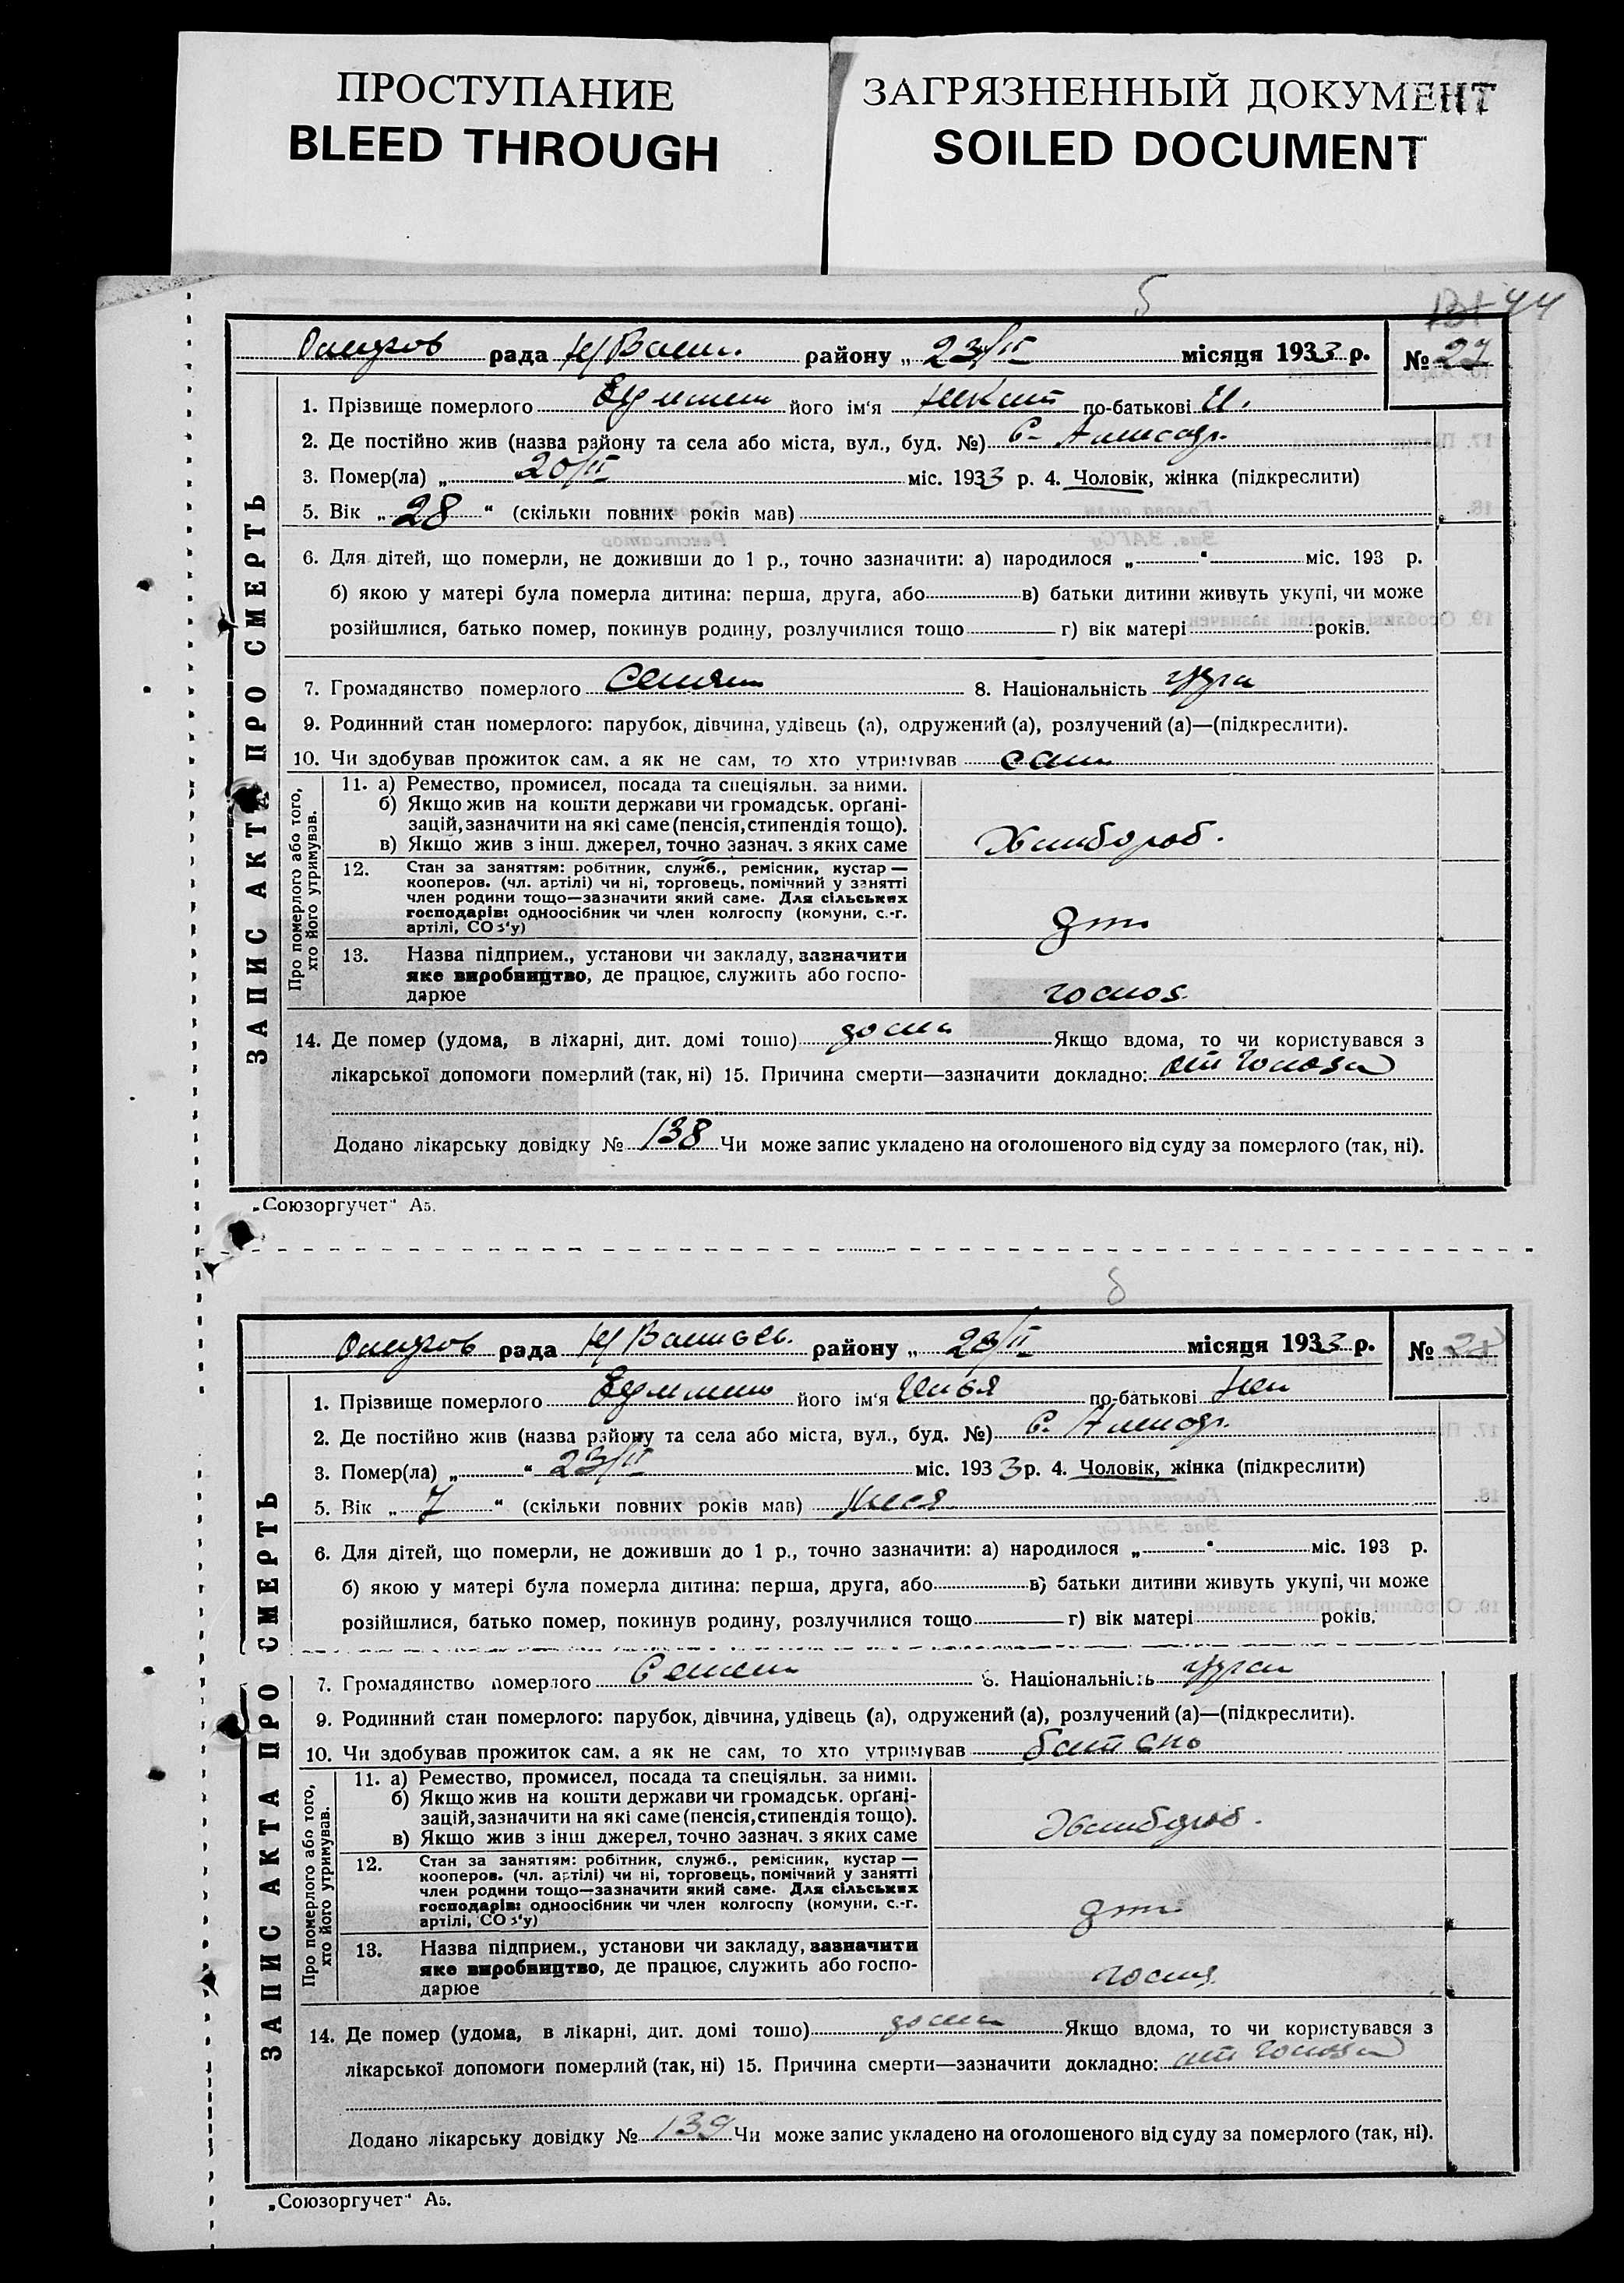 ПРОСТУПАНИЕ
BLEED THROUGH
ЗАГРЯЗНЕННЫЙ ДОКУМЕНТ
SOILED DOCUMENT
44
рада району „ 23/II місяця 1933 р. № 27
ЗАПИС АКТА ПРО СМЕРТЬ
1. Прізвище померлого його ім'я по-батькові И.
2. Де постійно жив (назва району та села або міста, вул., буд. №) С.
3. Помер(ла) „ 20/II міс. 1933 р. 4. Чоловік, жінка (підкреслити)
5. Вік „ 28 “ (скільки повних років мав)
6. Для дітей, що померли, не доживши до 1 р., точно зазначити: а) народилося „ “ міс. 193 р.
б) якою у матері була померла дитина: перша, друга, або в) батьки дитини живуть укупі, чи може
розійшлися, батько помер, покинув родину, розлучилися тощо г) вік матері років.
7. Громадянство померлого 8. Національність
9. Родинний стан померлого: парубок, дівчина, удівець (а), одружений (а), розлучений (а)—(підкреслити).
10. Чи здобував прожиток сам, а як не сам, то хто утримував сам
Про померлого або того, хто його утримував.
11. а) Ремество, промисел, посада та спеціяльн. за ними.
б) Якщо жив на кошти держави чи громадськ. орґані-
зацій, зазначити на які саме (пенсія, стипендія тощо).
в) Якщо жив з інш. джерел, точно зазнач. з яких саме
Хлибороб.
12. Стан за заняттям: робітник, служб., ремісник, кустар —
кооперов. (чл. артілі) чи ні, торговець, помічний у занятті
член родини тощо—зазначити який саме. Для сільських
господарів: одноосібник чи член колгоспу (комуни, с.-г.
артілі, СОЗ'у)
13. Назва підприєм., установи чи закладу, зазначити
яке виробництво, де працює, служить або госпо-
дарює
14. Де помер (удома, в лікарні, дит. домі тощо) дома Якщо вдома, то чи користувався з
лікарської допомоги померлий (так, ні) 15. Причина смерти—зазначити докладно: от голода
Додано лікарську довідку № 138 Чи може запис укладено на оголошеного від суду за померлого (так, ні).
„Союзоргучет“ А5.
рада району „ 23/II місяця 1933 р. №
ЗАПИС АКТА ПРО СМЕРТЬ
1. Прізвище померлого його ім'я Илья по-батькові
2. Де постійно жив (назва району та села або міста, вул., буд. №) С.
3. Помер(ла) „ “ 23/II міс. 1933 р. 4. Чоловік, жінка (підкреслити)
5. Вік „ 7 “ (скільки повних років мав)
6. Для дітей, що померли, не доживши до 1 р., точно зазначити: а) народилося „ “ міс. 193 р.
б) якою у матері була померла дитина: перша, друга, або в) батьки дитини живуть укупі, чи може
розійшлися, батько помер, покинув родину, розлучилися тощо г) вік матері років.
7. Громадянство померлого 8. Національність
9. Родинний стан померлого: парубок, дівчина, удівець (а), одружений (а), розлучений (а)—(підкреслити).
10. Чи здобував прожиток сам, а як не сам, то хто утримував
Про померлого або того, хто його утримував.
11. а) Ремество, промисел, посада та спеціяльн. за ними.
б) Якщо жив на кошти держави чи громадськ. орґані-
зацій, зазначити на які саме (пенсія, стипендія тощо).
в) Якщо жив з інш. джерел, точно зазнач. з яких саме
Хлибороб.
12. Стан за заняттям: робітник, служб., ремісник, кустар —
кооперов. (чл. артілі) чи ні, торговець, помічний у занятті
член родини тощо—зазначити який саме. Для сільських
господарів: одноосібник чи член колгоспу (комуни, с.-г.
артілі, СОЗ'у)
13. Назва підприєм., установи чи закладу, зазначити
яке виробництво, де працює, служить або госпо-
дарює
14. Де помер (удома, в лікарні, дит. домі тощо) дома Якщо вдома, то чи користувався з
лікарської допомоги померлий (так, ні) 15. Причина смерти—зазначити докладно: от голода
Додано лікарську довідку № 139 Чи може запис укладено на оголошеного від суду за померлого (так, ні).
„Союзоргучет“ А5.